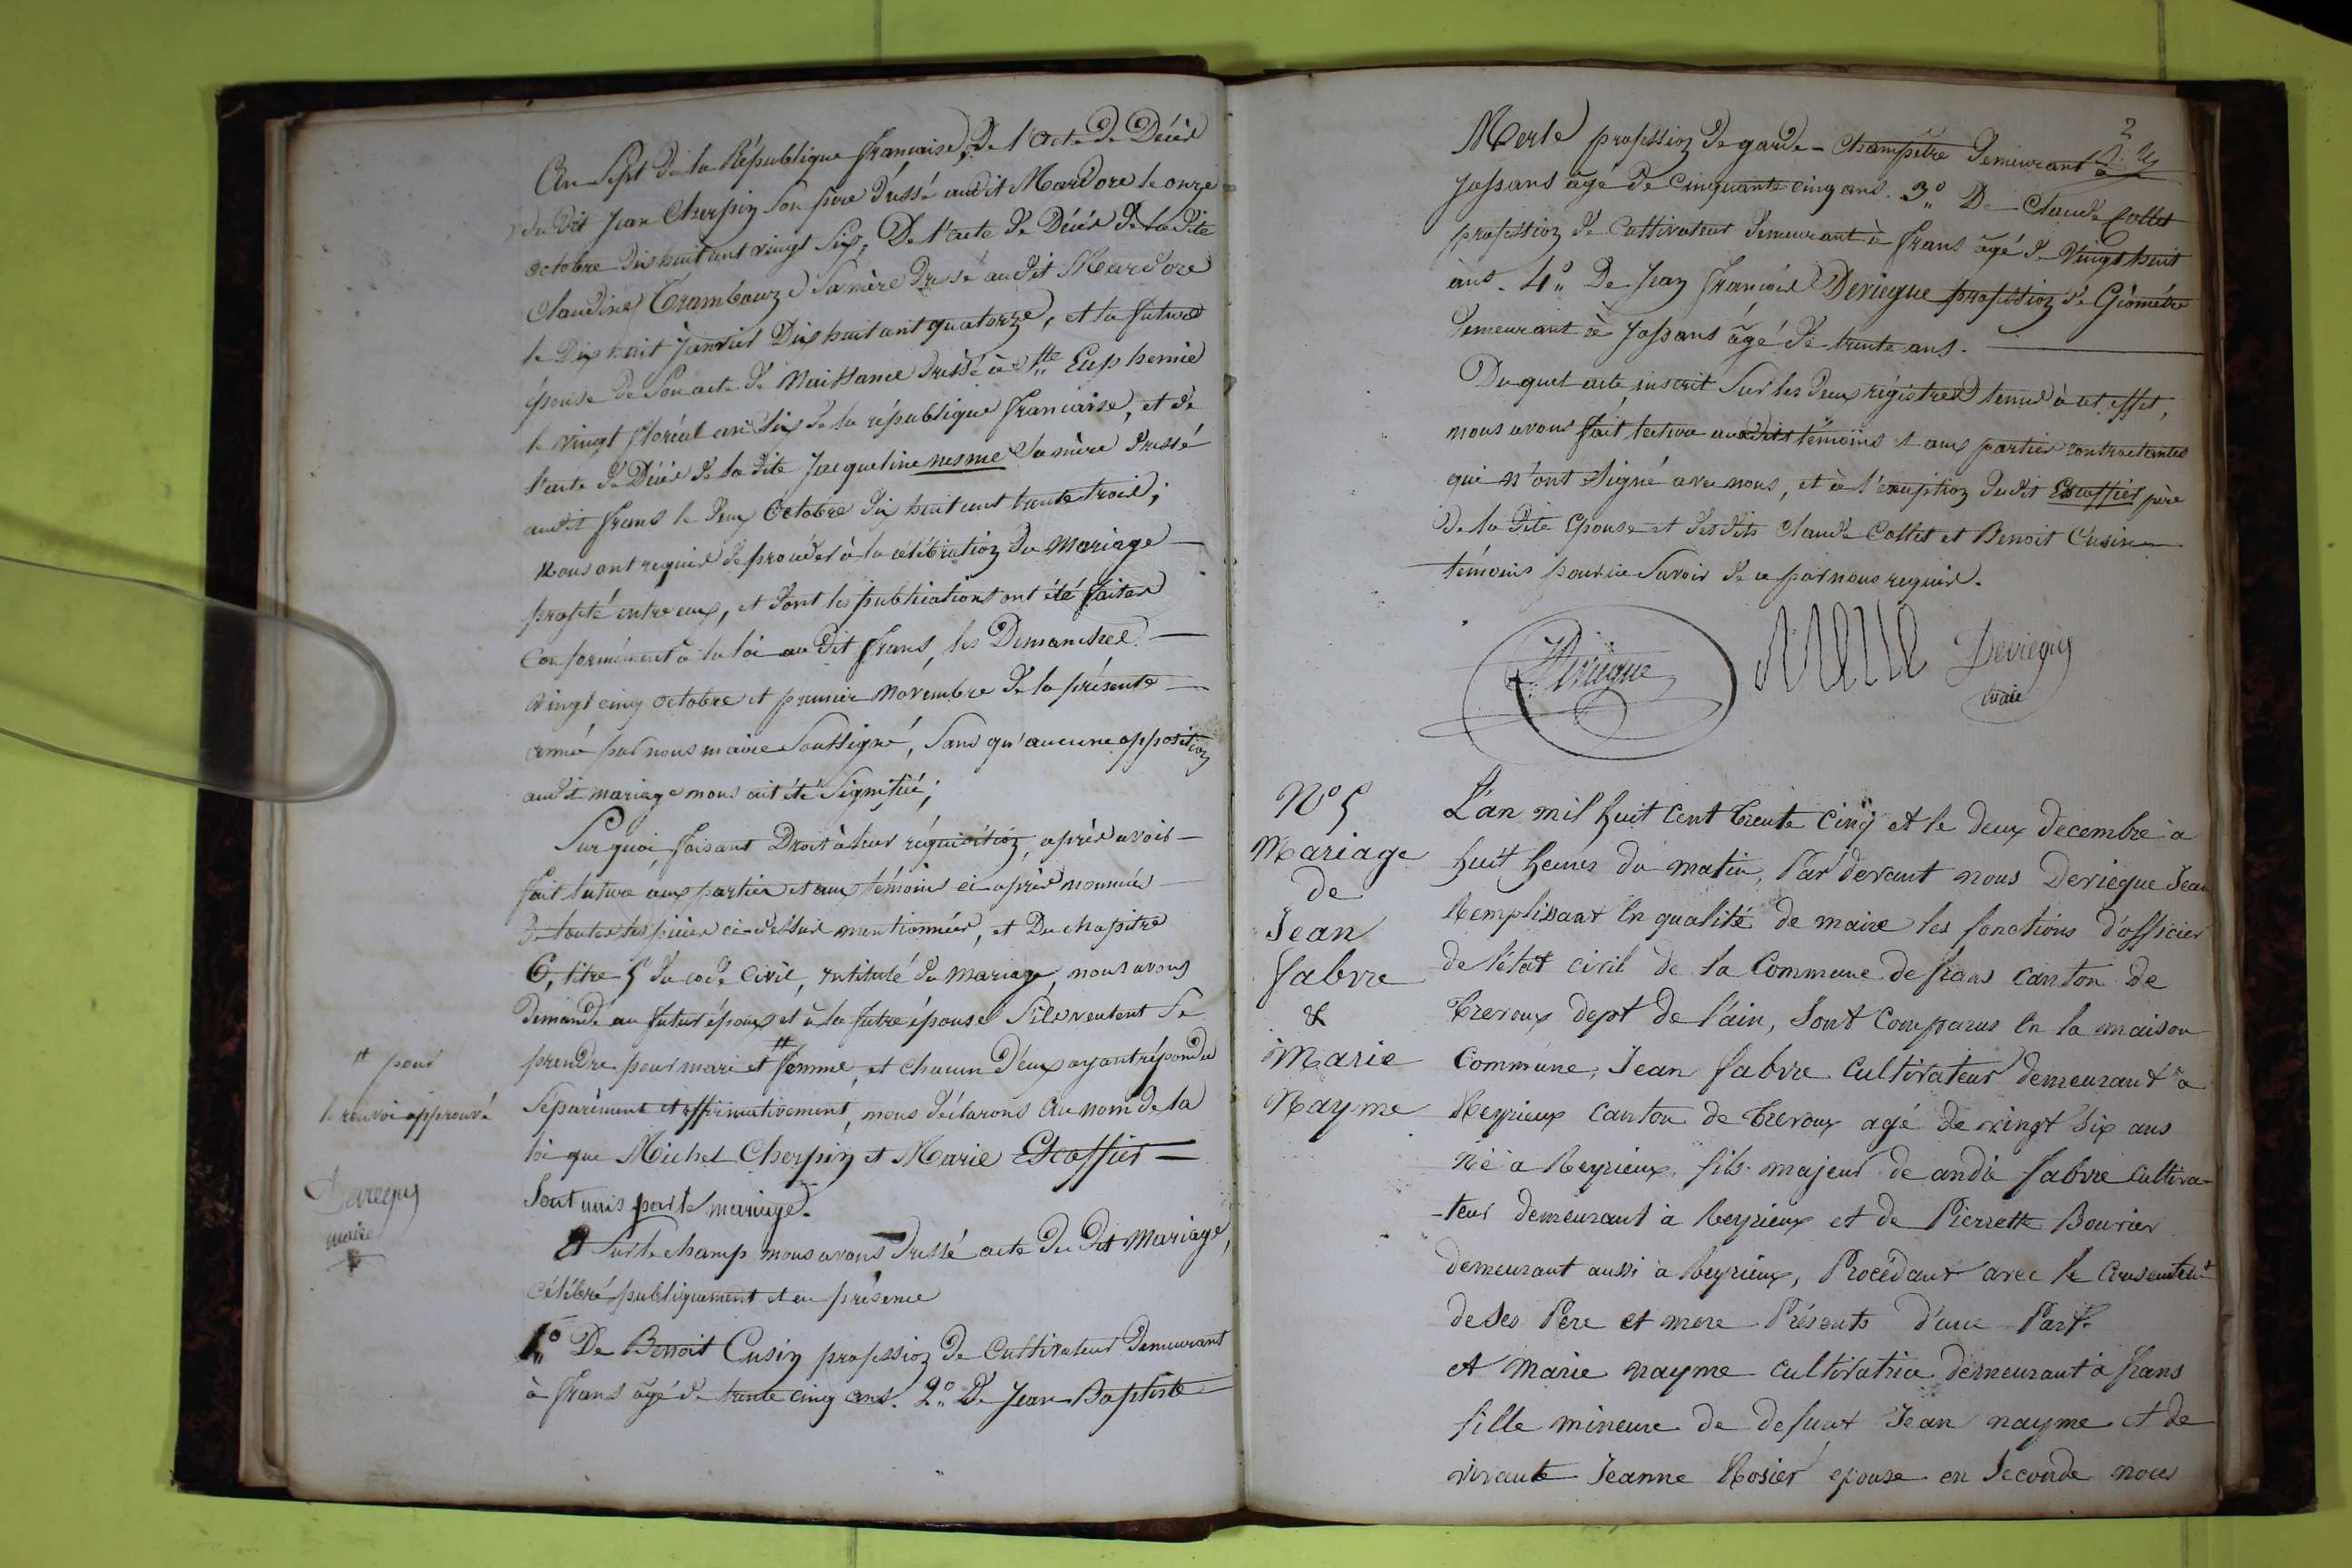 An Sept de la République française, de l'acte de Décès
du dit Jean Cherpin son père dressé audit Mardore le onze
octobre dix huit cent vingt six, De l'acte de Décès de la dite
Claudine Trambouze sa mère dressé audit Mardore
le Dix huit Janvier Dix huit cent quatorze, et la future
épouse de son acte de Naissance dressé à Ste Euphemie
le vingt floréal an six de la république française, et de
l'acte de Décès de la dite Jacqueline nesme sa mère dressé
audit frans le deux Octobre dix huit cent trente trois;
Nous ont requis de procéder à la célébration du Mariage
projeté entre eux, et dont les publications ont été faites
Conformément à la loi au dit frans, les Dimanches
vingt cinq octobre et premier Novembre de la présente
année par nous maire soussigné, sans qu'aucune opposition
audit mariage nous ait été signifiée;
Sur quoi, faisant Droit à leur réquisition, après avoir
fait lecture aux parties et aux témoins ci après nommés
de toutes les pièces ci-dessus mentionnées, et Du chapitre
6, titre 5 du code Civil, intitulé du Mariage, nous avons
Demandé au futur époux et à la future épouse s'ils veulent se
prendre pour mari et # femme, et chacun d'eux ayant répondu
Séparément et affirmativement, nous déclarons au nom de la
loi que Michel Cherpin et Marie Escoffier
Sont unis par le mariage.
Et sur le champ nous avons dressé acte du dit Mariage,
célébré publiquement et en présence
1° De Benoit Cusin profession de Cultivateur demeurant
à frans âgé de trente cinq ans. 2° De Jean Baptiste
# pour
le renvoi approuvé
Deriegue
maire
Merle profession de garde-Champêtre demeurant à
Jassans âgé de Cinquante cinq ans. 3° De Claude Collet
profession de Cultivateur demeurant à frans âgé de Vingt huit
ans. 4° De Jean François Deriegue profession de Géomètre
demeurant à Jassans âgé de trente ans.
Duquel acte, inscrit sur les deux régistres tenus à cet effet,
nous avons fait lecture auxdits témoins et aux parties contractantes
qui n'ont signé avec nous, et à l'exception dudit Escoffier père
de la dite Epouse et des dits Claude Collet et Benoit Cusin
témoins pour ne savoir de ce par nous requis.
Deriegue Merle Deriegue
maire
N° 5
Mariage
de
Jean
fabvre
&
Marie
Nayme
L'an mil huit Cent trente cinq et le deux decembre a
huit heures du matin, Par devant nous Deriegue Jean
Remplissant En qualité de maire les fonctions d'officier
de l'état civil de la Commune de frans canton de
Trevoux dept de l'ain, Sont Comparus En la maison
Commune, Jean fabvre Cultivateur demeurant a
Reyrieux canton de Trevoux agé de vingt six ans
né a Reyrieux fils majeur de andré fabvre cultiva-
-teur demeurant a Reyrieux et de Pierrette Bouvier
demeurant aussi a Reyrieux, Procédant avec le Consentemt
de ses Pere et mere Présents d'une Part
et Marie nayme cultivatrice demeurant a frans
fille mineure de defunt Jean nayme et de
vivante Jeanne Rosier epouse en Seconde noces